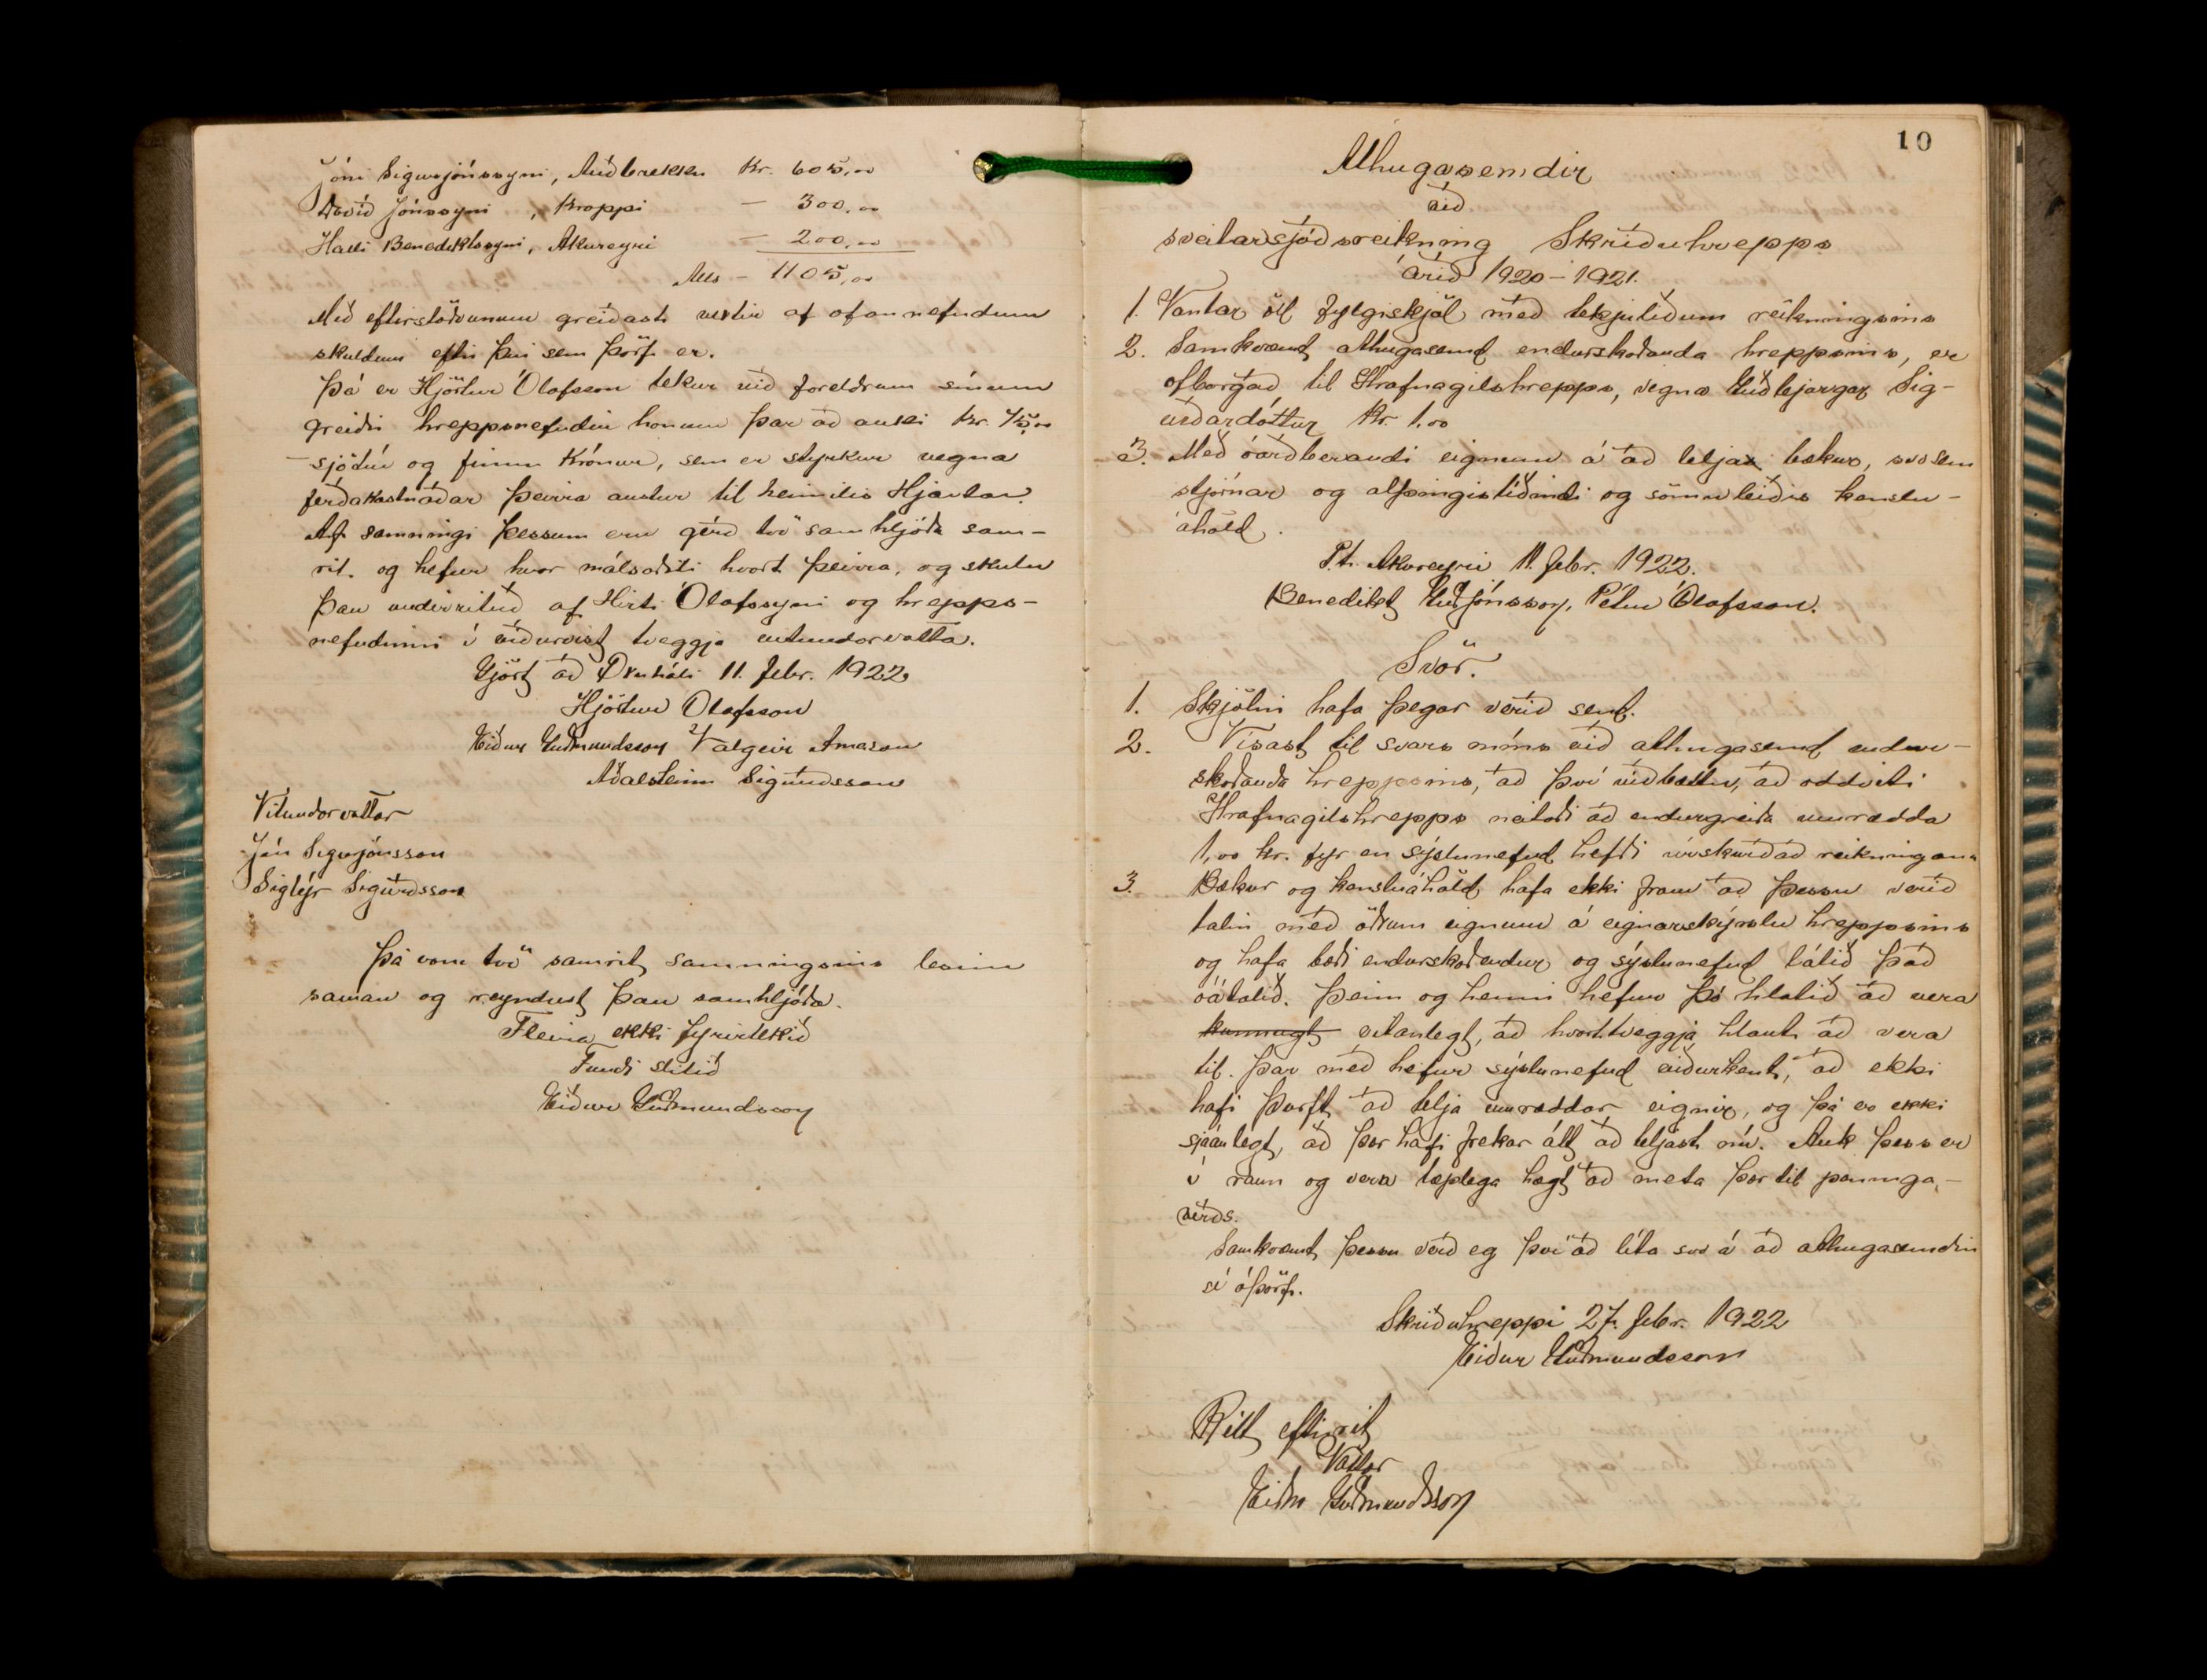 Jóni Sigurjónssyni, Auðbrekku Kr. 605,00
Davíð Jónssyni, Kroppi — 300,00
Halli Benediktssyni, Akureyri — 200,00
Alls - 1105,00
Með eftirstöðvunum greiðast vextir af ofannefndum
skuldum eftir því sem þörf er.
Þá er Hjörtur Ólafsson tekur við foreldrum sínum
greiðir hreppsnefndin honum þar að auki kr. 75,00
- sjötíu og fimm krónur, sem er styrkur vegna
ferðakostnaðar þeirra austur til heimilis Hjartar.
Af samningi þessum eru gerð tvö samhljóða sam-
rit. og hefur hvor málsaðili hvort þeirra, og skulu
þau undirrituð af Hirti Ólafssyni og hrepps-
nefndinni í viðurvist tveggja vitundarvotta.
Gjört að Öxnhóli 11. febr. 1922
Hjörtur Ólafsson
Eiður Guðmundsson Valgeir Árnason
Aðalsteinn Sigurðsson
Vitundarvottar
Jón Sigurjónsson
Sigtýr Sigurðsson
Þá voru tvö samrit samningsins lesin
saman og reyndust þau samhljóða.
Fleira ekki fyrirtekið
Fundi slitið
Eiður Guðmundsson
10
Athugasemdir
við
sveitarsjóðsreikning Skriðuhrepps
árið 1920-1921.
1. Vantar öll fylgiskjöl með tekjuliðum reikningsins
2. Samkvæmt athugasemd endurskoðanda hreppsins, er
ofborgað til Hrafnagilshrepps, vegna Guðbjargar Sig-
urðardóttur kr. 1.00
3. Með óarðberandi eignum á að telja bækur, svo sem
stjórnar og alþingistíðindi og sömuleiðis kenslu-
áhöld.
P.t. Akureyri 11. febr. 1922.
Benedikt Guðjónsson, Pétur Ólafsson.
Svör.
1. Skjölin hafa þegar verið send.
2. Vísast til svars míns við athugasemd endur-
skoðanda hreppsins, að því viðbættu, að oddviti
Hrafnagilshrepps neitaði að endurgreiða umrædda
1,00 kr. fyr en sýslunefnd hefði úrskurðað reikningana
3. Bækur og kensluáhöld hafa ekki fram að þessu verið
talin með öðrum eignum á eignarskýrslu hreppsins
og hafa bæði endurskoðendur og sýslunefnd látið það
óátalið. Þeim og henni hefur þó hlotið að vera
kunnugt vitanlegt, að hvorttveggja hlaut að vera
til. Þar með hefur sýslunefnd viðurkent, að ekki
hafi þurft að telja umræddar eignir, og þá er ekki
sjáanlegt, að þær hafi frekar átt að teljast nú. Auk þess er
í raun og veru tæplega hægt að meta þær til peninga-
verðs.
Samkvæmt þessu verð eg því að líta svo á að athugasemdin
sé óþörf.
Skriðuhreppi 27. febr. 1922
Eiður Guðmundsson
Rétt eftirrit
Vottar
Eiður Guðmundsson